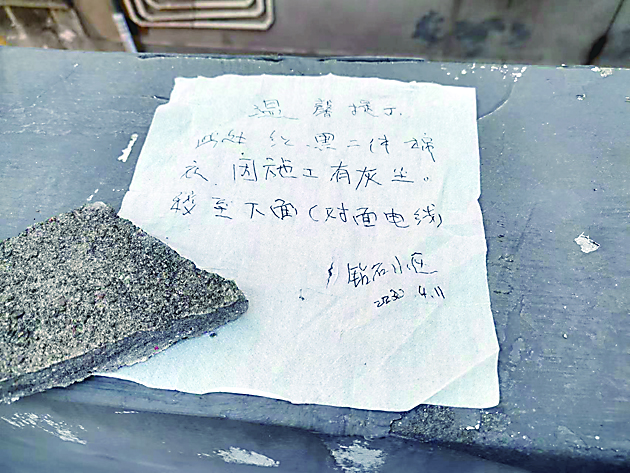 温馨提示
此处红.黑二件棉
衣,因施工有灰尘。
移至下面(对面电线)
钻石小区
4.11